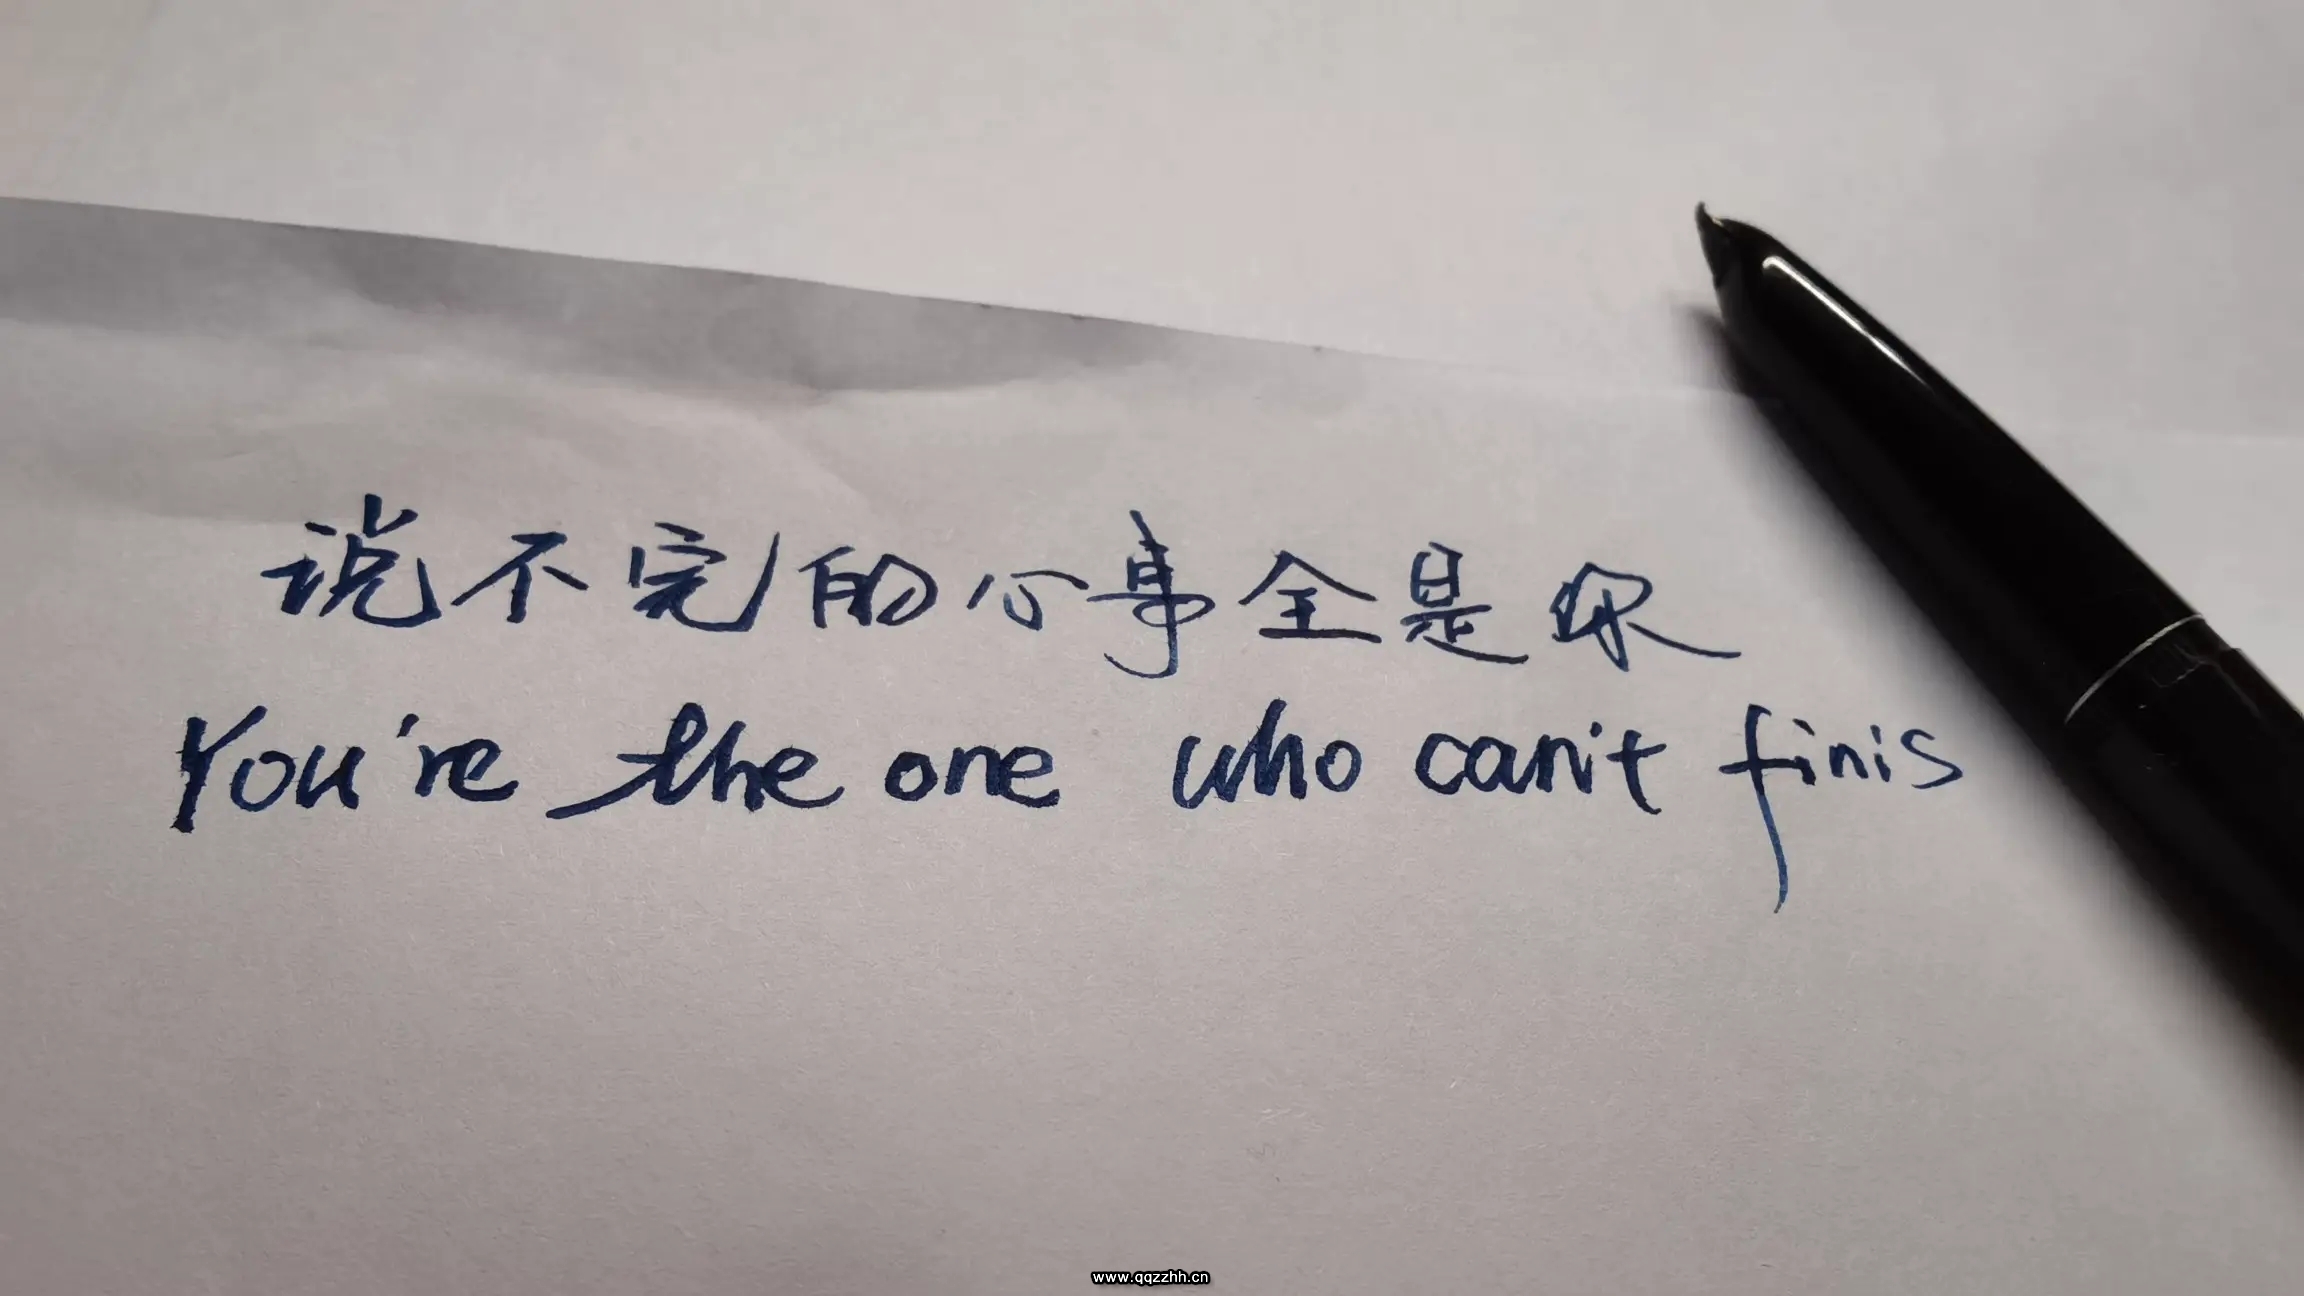 说不完的心事全是你
You're the one who can't finis
www.qqzzhh.cn